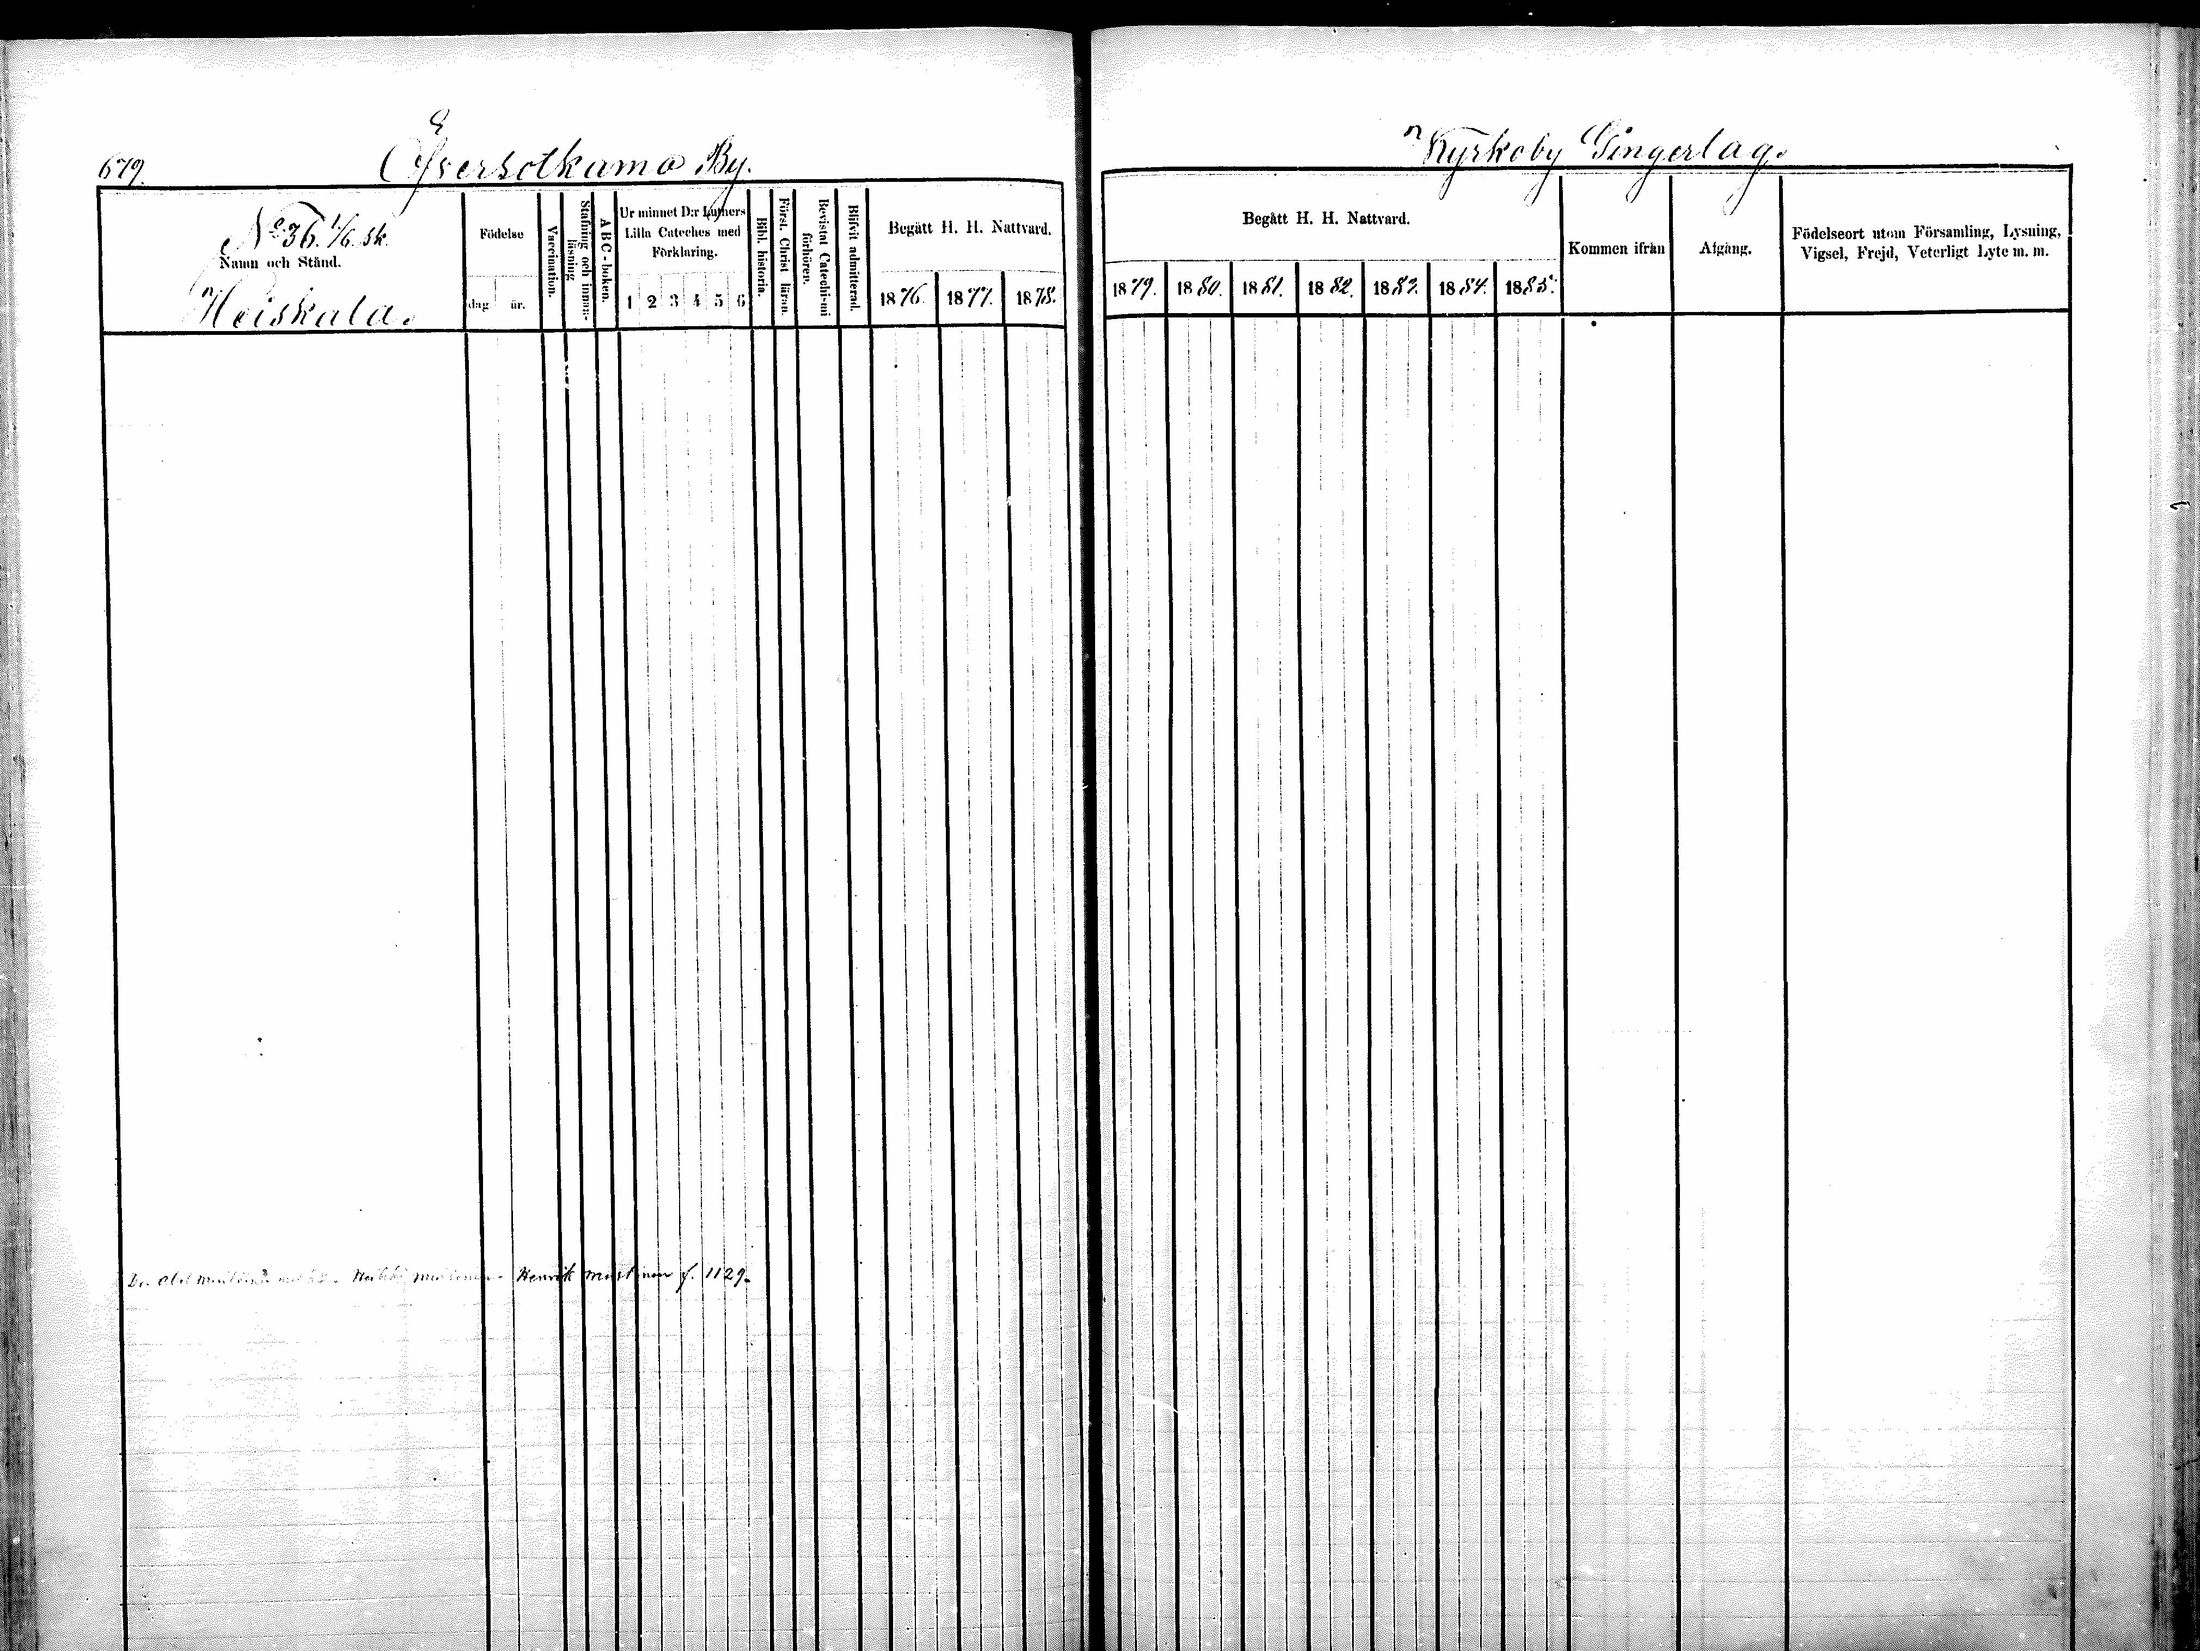 679.
Öfversotkamo By.
Kyrkoby Gingerlag.
No 36. 1/6. sk.
Namn och Stånd.
Heiskala.
Födelse
dag
år.
Vaccination.
Stafning och innan-
läsning
ABC-boken.
Ur minnet D:r Luthers
Lilla Cateches med
Förklaring.
1 2 3 4 5 6
Bibl. historia.
Först. Christ läran.
Bevistat Catechi-mi
förhören.
Blifvit admitterad.
Begått H. H. Nattvard.
1876. 1877. 1878.
Begått H. H. Nattvard.
1879. 1880. 1881. 1882. 1883. 1884. 1885.
Kommen ifrån
Afgång.
Födelseort utom Församling, Lysning,
Vigsel, Frejd, Veterligt Lyte m. m.
Henrik Mustonen f. 1129.